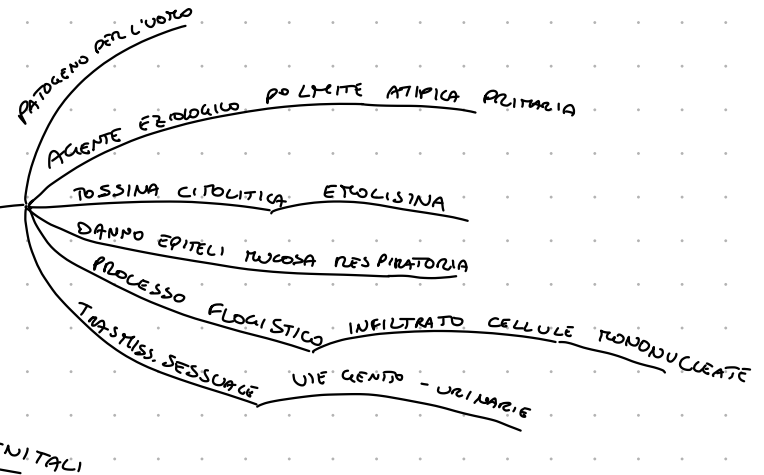 PATOGENO PER L'UOMO
AGENTE EZIOLOGICO POLMITE ATIPICA PRIMARIA
TOSSINA CITOLITICA EMOLISINA
DANNO EPITELI MUCOSA RESPIRATORIA
PROCESSO FLOGISTICO INFILTRATO CELLULE MONONUCLEATE
TRASMISS. SESSUALE VIE GENITO - URINARIE
ENITALI